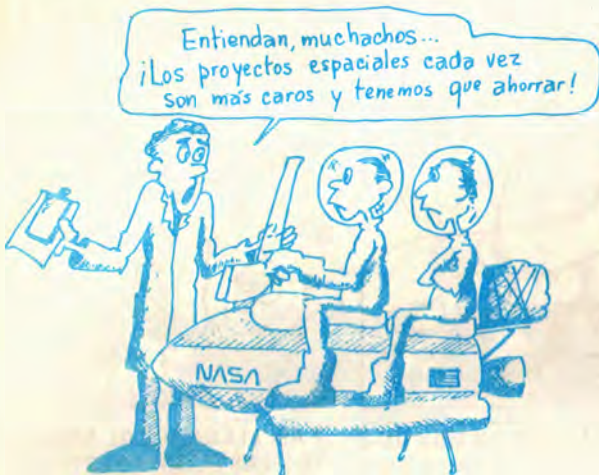 Entiendan, muchachos...
¡Los proyectos espaciales cada vez
son más caros y tenemos que ahorrar!
NASA